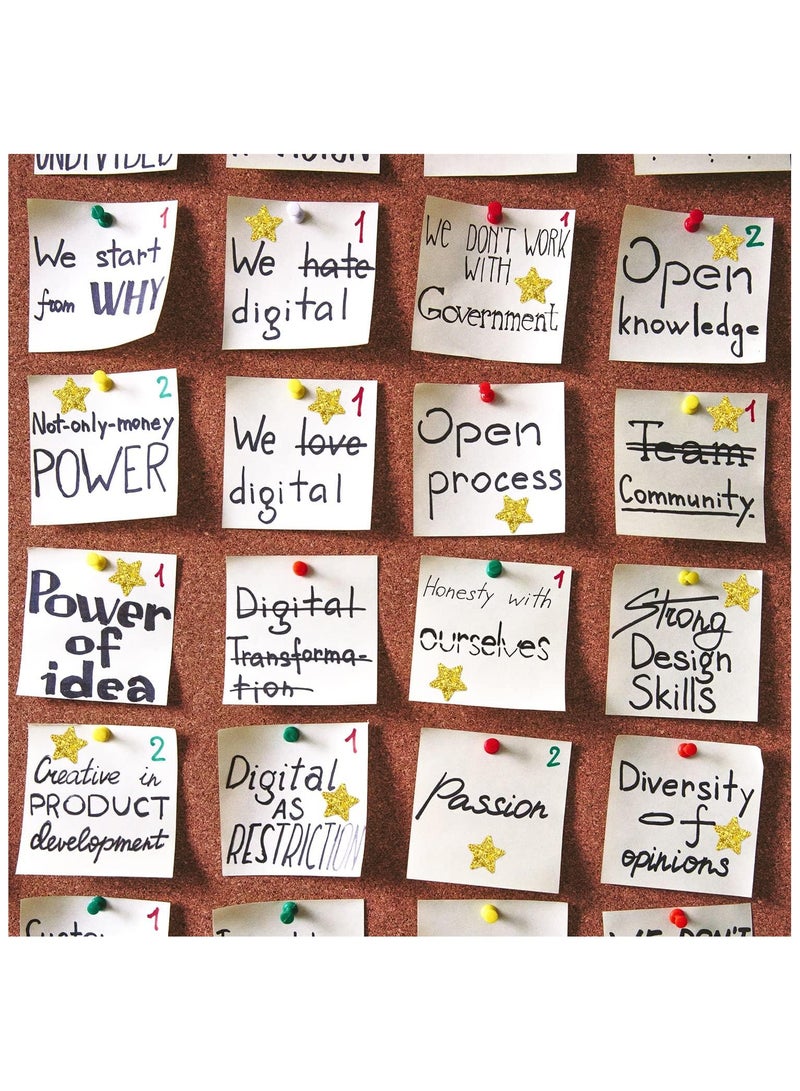 UNDIVIDED
1
We start
from WHY
1
We hate
digital
1
WE DON'T WORK
WITH
Government
2
Open
knowledge
2
Not-only-money
POWER
1
We love
digital
Open
process
1
Team
Community.
1
Power
of
idea
Digital
Transforma-
tion
1
Honesty with
ourselves
Strong
Design
Skills
2
Creative in
PRODUCT
development
1
Digital
AS
RESTRICTION
2
Passion
Diversity
of
opinions
1
WE DON'T